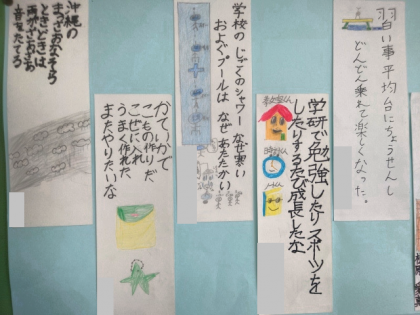 習い事平均台にちょうせんし
どんどん乗れて楽しくなった。
学研で勉強したりスポーツを
したりするたび成長したな
学校の じごくのシャワー なぜ寒い
およぐプールは なぜ あたたかい
かていかで
こもの作りだ
こせいに入れ
うまく作れた
またやりたいな
沖縄の
まっさおなそら
ときどきは
雨がざあざあ
音をたてる